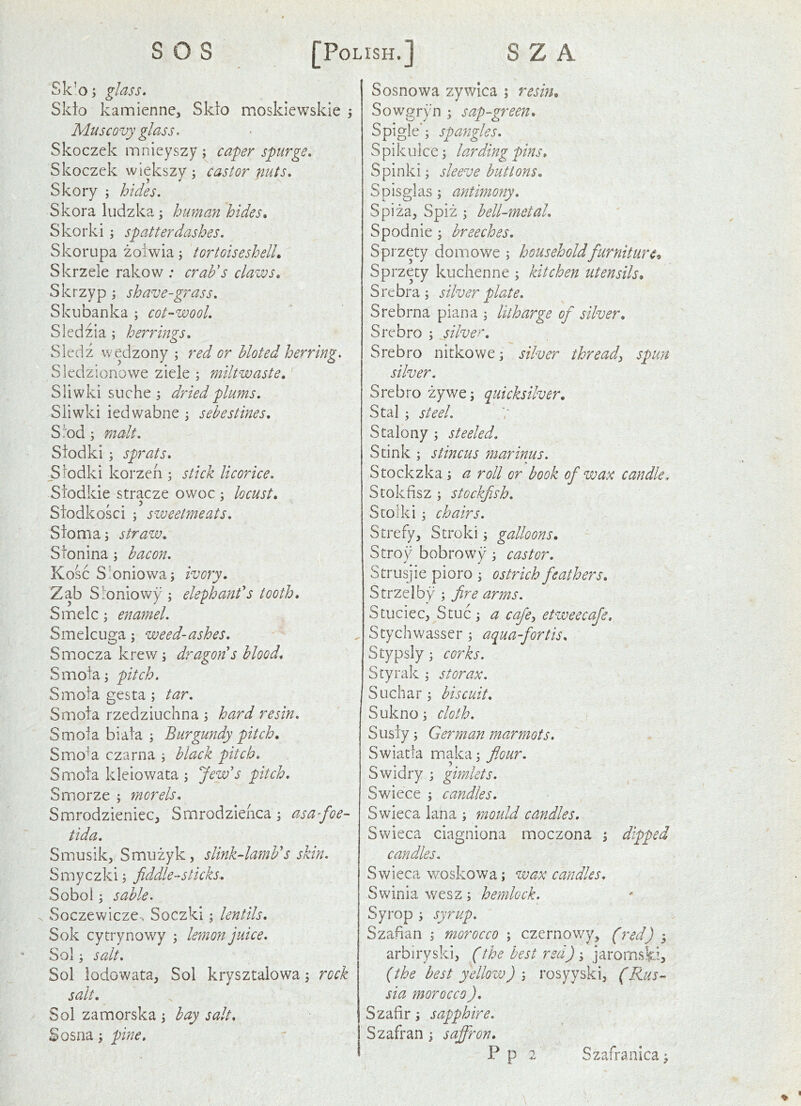 S O S [POLISH.] S Z A
Skło; glass.
Skło kamienne, Skło moskiewskie;
Muscovy glass.
Skoczek mnieyszy; caper spurge.
Skoczek większy; castor nuts.
Skory; hides.
Skora ludzka; human hides.
Skorki; spatterdashes.
Skorupa żołwia; tortoiseshell.
Skrzele rakow: crab's claws.
Skrzyp; shave-grass.
Skubanka; cot-wool.
Sledźia; herrings.
Sledź wędzony; red or bloted herring.
Sledzionowe ziele; miltwaste.
Sliwki suche; dried plums.
Sliwki iedwabne; sebestines.
Słod; malt.
Słodki; sprats.
Słodki korzeń; stick licorice.
Słodkie strącze owoc; locust.
Słodkości; sweetmeats.
Słoma; straw.
Słonina; bacon.
Kość Słoniowa; ivory.
Ząb Słoniowy; elephant's tooth.
Smelc; enamel.
Smelcuga; weed-ashes.
Smocza krew; dragon's blood.
Smoła; pitch.
Smoła gesta; tar.
Smoła rzedziuchna; hard resin.
Smoła biała; Burgundy pitch.
Smoła czarna; black pitch.
Smoła kleiowata; Jew's pitch.
Smorze; morels.
Smrodzieniec, Smrodzieńca; asa-foe-
tida.
Smusik, Smużyk, slink-lamb's skin.
Smyczki; fiddle-sticks.
Sobol; sable.
Soczewicze, Soczki; lentils.
Sok cytrynowy; lemon juice.
Sol; salt.
Sol lodowata, Sol krysztalowa; rock
salt.
Sol zamorska; bay salt.
Sosna; pine.
Sosnowa zywica; resin.
Sowgryn; sap-green.
Spigle; spangles.
Spikulce; larding pins.
Spinki; sleeve buttons.
Spisglas; antimony.
Spiża, Spiż; bell-metal.
Spodnie; breeches.
Sprzęty domowe; household furniture.
Sprzęty kuchenne; kitchen utensils.
Srebra; silver plate.
Srebrna piana; litharge of silver.
Srebro; silver.
Srebro nitkowe; silver thread, spun
silver.
Srebro żywe; quicksilver.
Stal; steel.
Stalony; steeled.
Stink; stincus marinus.
Stockzka; a roll or book of wax candle.
Stokfisz; stockfish.
Stolki; chairs.
Strefy, Stroki; galloons.
Stroy bobrowy; castor.
Strusjie pioro; ostrich feathers.
Strzelby; fire arms.
Stuciec, Stuć; a cafe, etweecafe.
Stychwasser; aqua-fortis.
Stypsly; corks.
Styrak; storax.
Suchar; biscuit.
Sukno; cloth.
Susly; German marmots.
Swiatła mąka; flour.
Swidry; gimlets.
Swiece; candles.
Swieca lana; mould candles.
Swieca ciagniona moczona; dipped
candles.
Swieca woskowa; wax candles.
Swinia wesz; hemlock.
Syrop; syrup.
Szafian; morocco; czernowy, (red);
arbiryski, (the best red); jaromski,
(the best yellow); rosyyski, (Rus-
sia morocco).
Szafir; sapphire.
Szafran; saffron.
P p 2 Szafranica;